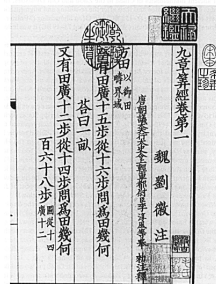 九章筭經卷第一
魏劉徽注
唐朝議大夫行太史令上輕車都尉臣李淳風等奉 勑注釋
方田 以御田疇界域
今有田廣十五步從十六步問為田幾何
荅曰一畝
又有田廣十二步從十四步問為田幾何
百六十八步 圖從十四廣十二